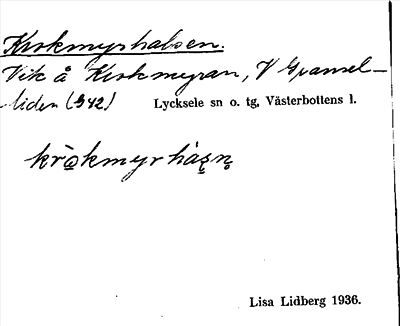 Krokmyrhalsen.
Vik å Krokmyran, V Gransel-
liden (942)
Lycksele sn o. tg, Västerbottens l.
kròkmyrhàsn
Lisa Lidberg 1936.